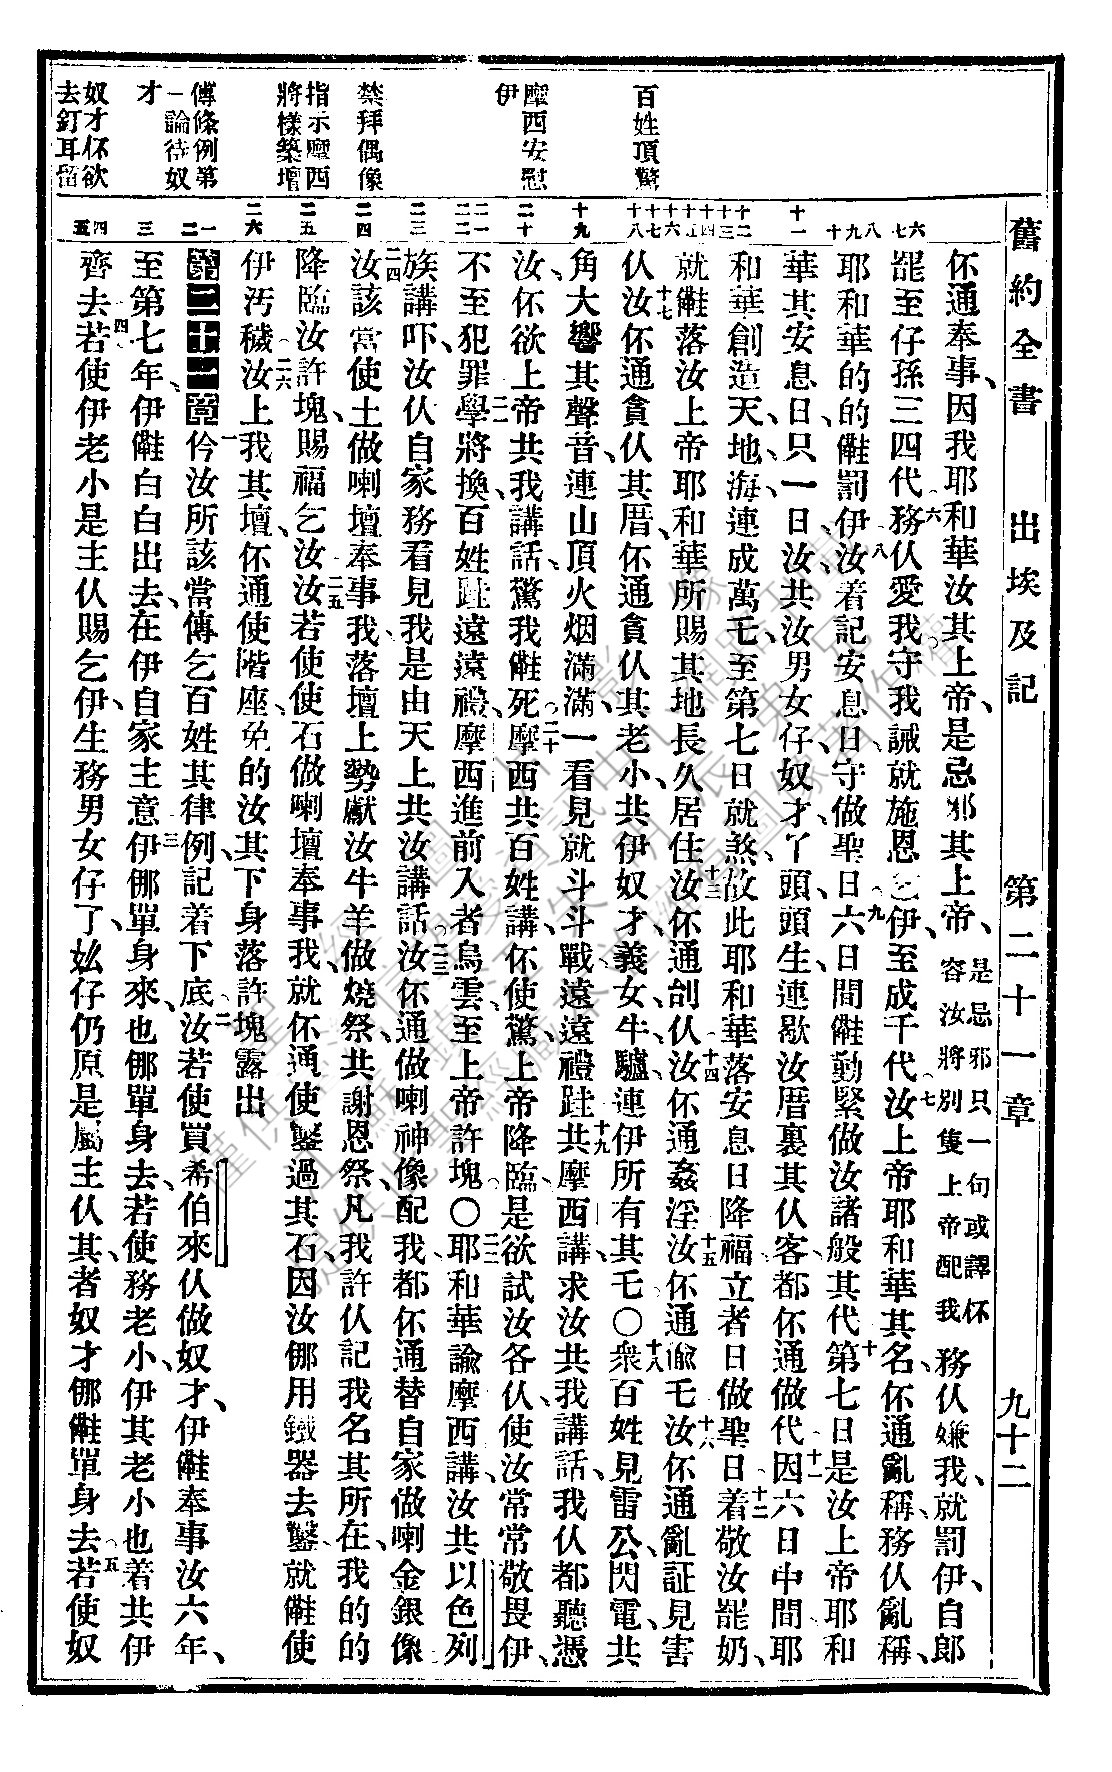 舊約全書 出埃及記 第二十一章 九十二
百姓頂驚
摩西安慰
伊
禁拜偶像
指示摩西
將樣築壇
傳條例第
一論待奴
才
奴才伓欲
去釘耳留
六
七
八
九
十
十一
十二
十三
十四
十五
十六
十七
十八
十九
二十
二一
二二
二三
二四
二五
二六
一
二
三
四
五
伓通奉事、因我耶六和華汝其上帝、是忌邪其上帝、是忌邪只一句或譯伓容汝將別隻上帝配我務仈嫌我、就罰伊、自郎
罷至仔孫三四代務仈愛我守我誡就施恩乞伊、至成千代七汝上帝耶和華其名、伓通亂稱、務仈亂稱、
耶和華的的𠆧罰伊、八汝着記安息日、守做聖日九六日間𠆧勤緊做汝諸般其代第十七日是汝上帝耶和
華其安息日、只一日汝共汝男女仔、奴才丫頭、頭生、連歇汝厝裏其仈客都伓通做代因十一六日中間耶
和華創造天地海、連成萬乇至第七日就煞、故此耶和華落安息日降福立者日做聖日十二着敬汝罷奶、
就𠆧落汝上帝耶和華所賜其地長久居住十三汝伓通刣仈十四汝伓通姦淫十五汝伓通偸乇十六汝伓通亂証見害
仈十七汝伓通貪仈其厝、伓通貪仈其老小、共伊奴才、義女、牛、驢、連伊所有其乇〇十八衆百姓見雷公、閃電、共
角大響其聲音、連山頂火烟滿滿、一看見就斗斗戰遠遠禮跬十九共摩西講、求汝共我講話、我仈都聽憑
汝、伓欲上帝共我講話、驚我𠆧死二十摩西共百姓講、伓使驚、上帝降臨、是欲試汝各仈、使汝常常敬畏伊、
不至犯罪二一學將換、百姓跬遠遠禮、摩西進前入者烏雲至上帝許塊〇二二耶和華論摩西講、汝共以色列
族講吓、汝仈自家務看見我是由天上共汝講話二三汝伓通做喇神像配我、都伓通替自家做喇金銀像
二四汝該當使土做喇壇奉事我、落壇上勢獻汝牛羊做燒祭、共謝恩祭、凡我許仈記我名其所在、我的的
降臨汝許塊、賜福乞汝二五汝若使使石做喇壇奉事我、就伓通使鑿過其石、因汝㑚用鐵器去鑿、就𠆧使
伊汚穢二六汝上我其壇、伓通使階座、免的汝其下身落許塊露出
第二十一章 一伱汝所該當傳乞百姓其律例、記着下底二汝若使買希伯來仈做奴才、伊𠆧奉事汝六年、
至第七年、伊𠆧白白出去、在伊自家主意三伊㑚單身來、也㑚單身去、若使務老小、伊其老小也着共伊
齊去四若使伊老小是主仈賜乞伊、生務男女仔了、妐仔仍原是屬主仈其、者奴才㑚𠆧單身去五若使奴